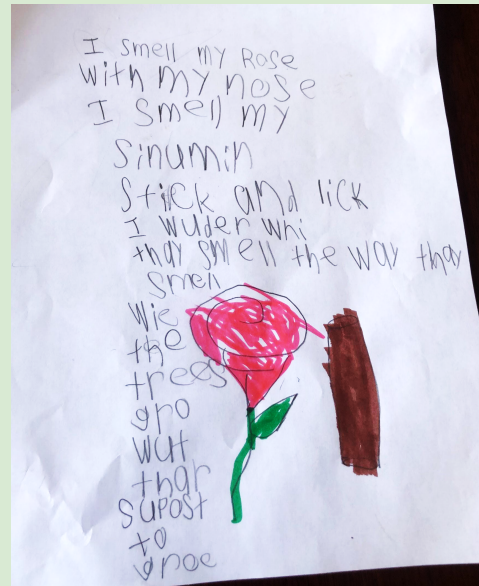 I smell my Rose
with my nose
I smell my
Sinumin
Stick and lick
I wuder whi
thay smell the way thay
smell
Wie
the
trees
gro
wut
thar
supost
to
groe